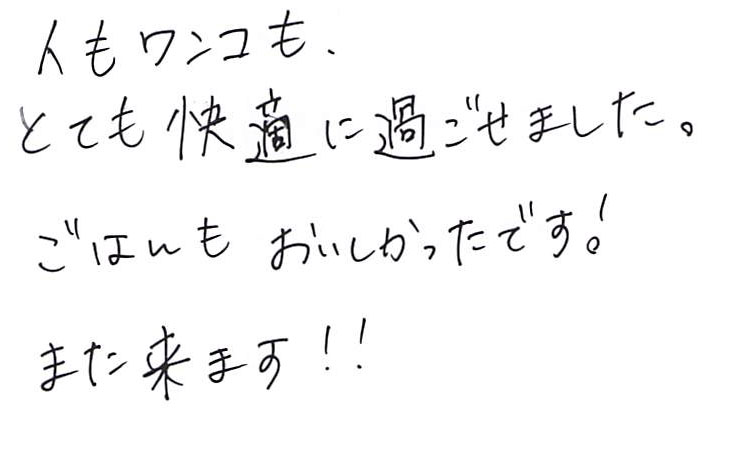 人もワンコも、
とても快適に過ごせました。
ごはんもおいしかったです!
また来ます!!